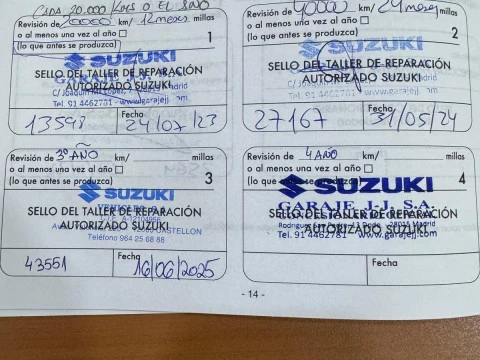 CADA 20.000 Kms O EL
Revisión de 20000 km/ 12 meses millas
o al menos una vez al año
(lo que antes se produzca) 1
SUZUKI
SELLO DEL TALLER DE REPARACIÓN
AUTORIZADO SUZUKI
Tel. 91 4462781 - www.garajejj.com
13598
Fecha
24/07/23
Revisión de 40000 km/ 24 meses millas
o al menos una vez al año
(lo que antes se produzca) 2
SUZUKI
SELLO DEL TALLER DE REPARACIÓN
AUTORIZADO SUZUKI
Tel. 91 4462781 - www.garajejj.com
27167
Fecha
31/05/24
Revisión de 3º AÑO km/ millas
o al menos una vez al año
(lo que antes se produzca) 3
SUZUKI
SELLO DEL TALLER DE REPARACIÓN
AUTORIZADO SUZUKI
CASTELLON
Teléfono 964 25 68 88
43551
Fecha
16/06/2025
Revisión de 4 AÑO km/ millas
o al menos una vez al año
(lo que antes se produzca) 4
SUZUKI
GARAJE J.J. S.A.
SELLO DEL TALLER DE REPARACIÓN
AUTORIZADO SUZUKI
Tel. 91 4462781 - www.garajejj.com
Fecha
- 14 -